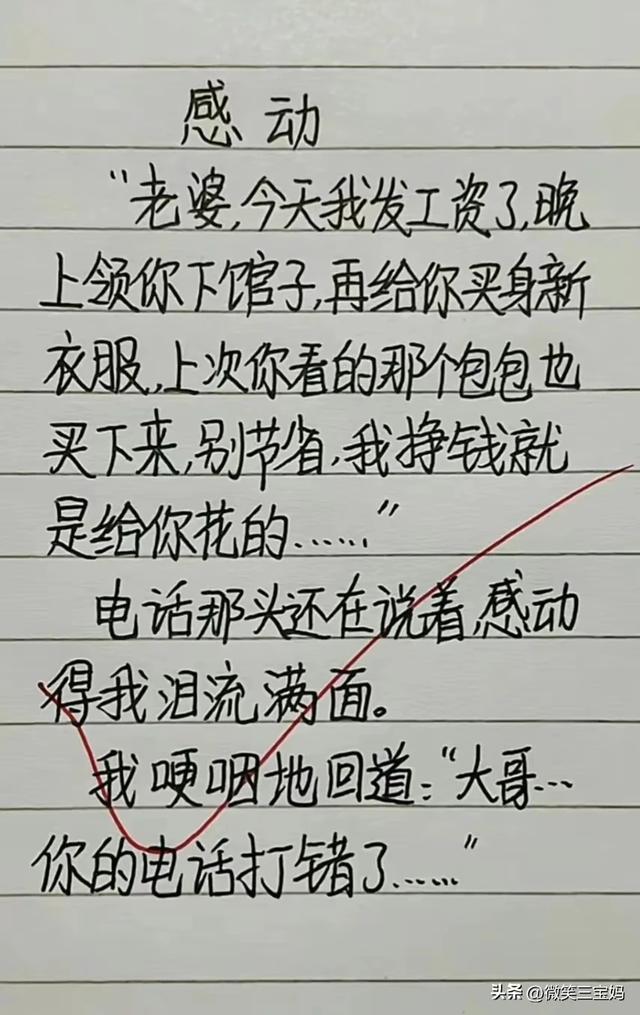 感动
“老婆,今天我发工资了,晚
上领你下馆子,再给你买身新
衣服,上次你看的那个包包也
买下来,别节省,我挣钱就
是给你花的......”
电话那头还在说着,感动
得我泪流满面。
我哽咽地回道:“大哥...
你的电话打错了......”
头条 @微笑三宝妈